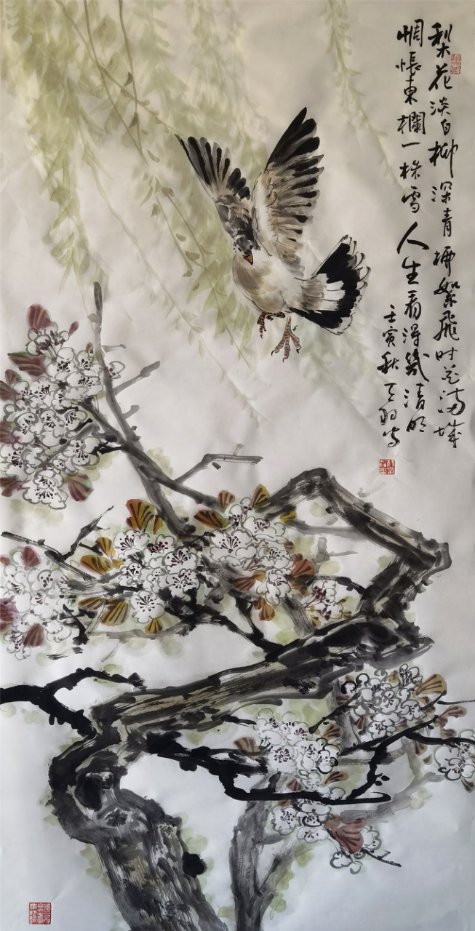 梨花淡白柳深青柳絮飛时花滿城
惆悵東欄一株雪人生看得幾清明
壬寅秋